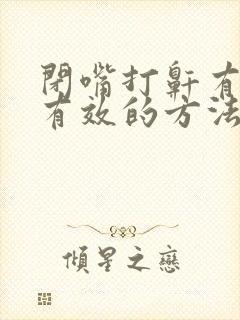 閉嘴打鼾有
有效的方法
傾星之戀